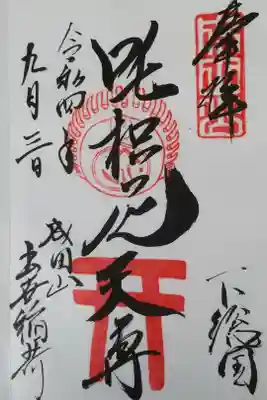 奉拝
下総国
吒枳尼天尊
令和四年
九月三日
成田山
出世稲荷